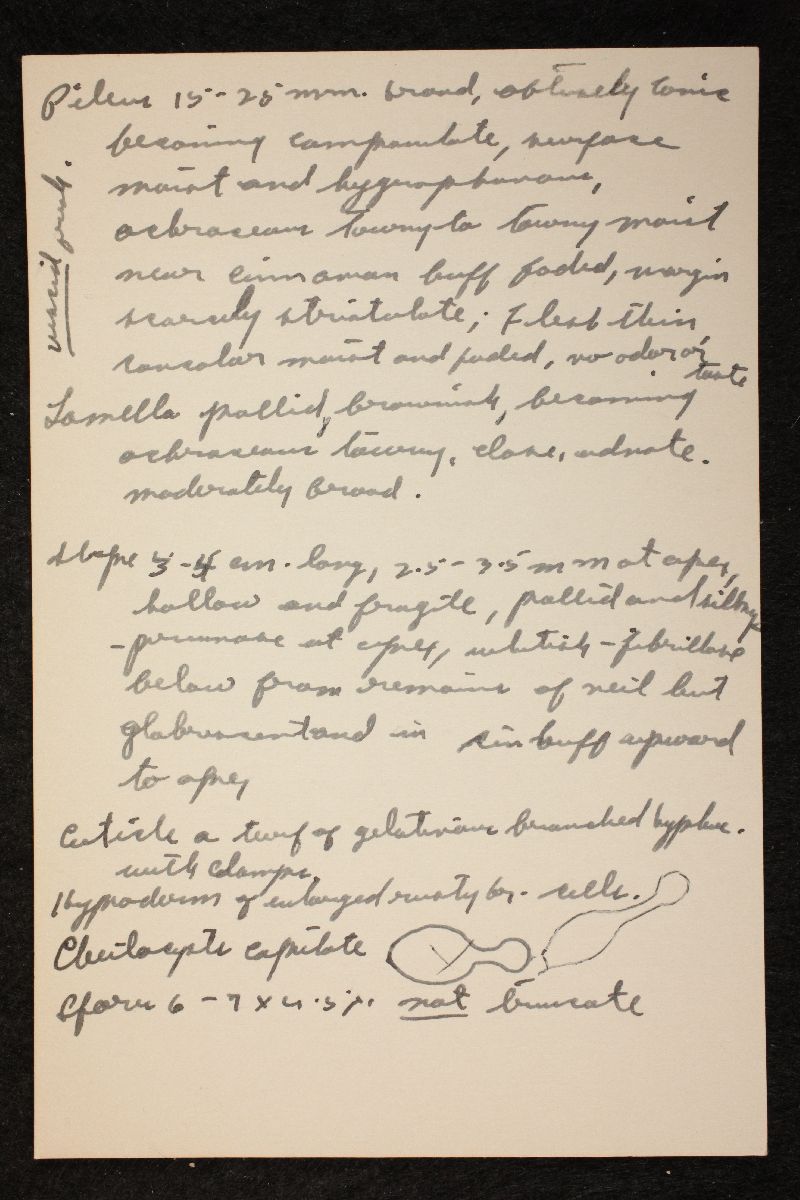 Pileus 15-25 mm. broad, obtusely conic
becoming campanulate, surface
moist and hygrophanous,
ochraceous tawny to tawny moist
near cinnamon buff faded, margin
scarcely striatulate; Flesh thin,
concolor moist and faded, no odor or
taste
viscid
Lamellae pallid, brownish, becoming
ochraceous tawny, close, adnate.
moderately broad.
Stipe 3-4 cm. long, 2.5-3.5 mm at apex,
hollow and fragile, pallid and silky
-pruinose at apex, whitish-fibrillose
below from remains of veil but
glabrescent and in cin buff upward
to apex
Cuticle a turf of gelatinous branched hyphae.
with clamps.
Hypoderm of enlarged rusty br. cells.
Cheilocysts capitate
Spores 6-7 x 4.5 µ. not truncate